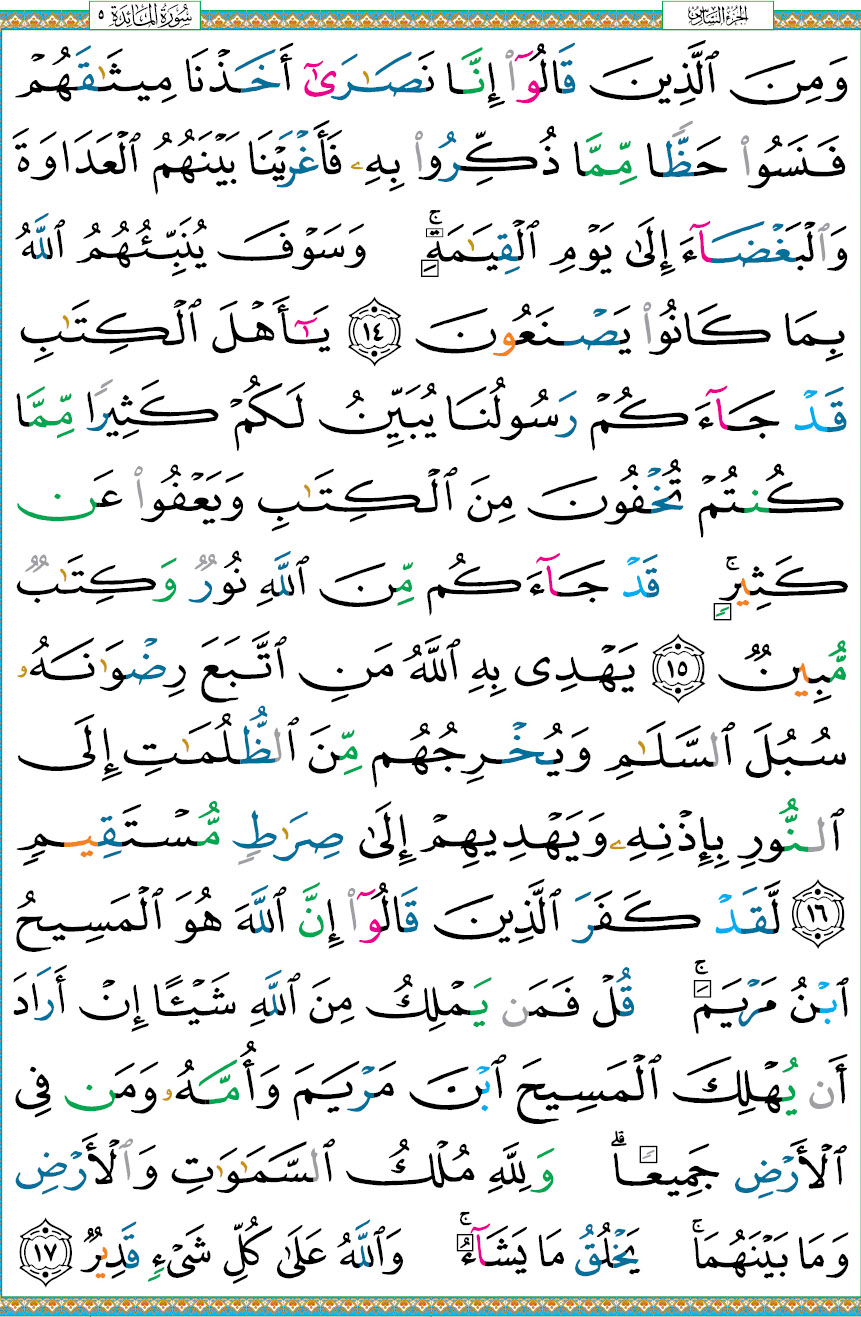 الجزء السادس
سورة المائدة ٥
وَمِنَ ٱلَّذِينَ قَالُوٓا۟ إِنَّا نَصَـٰرَىٰٓ أَخَذْنَا مِيثَـٰقَهُمْ
فَنَسُوا۟ حَظًّا مِّمَّا ذُكِّرُوا۟ بِهِۦ فَأَغْرَيْنَا بَيْنَهُمُ ٱلْعَدَاوَةَ
وَٱلْبَغْضَآءَ إِلَىٰ يَوْمِ ٱلْقِيَـٰمَةِ ۚ وَسَوْفَ يُنَبِّئُهُمُ ٱللَّهُ
بِمَا كَانُوا۟ يَصْنَعُونَ ١٤ يَـٰٓأَهْلَ ٱلْكِتَـٰبِ
قَدْ جَآءَكُمْ رَسُولُنَا يُبَيِّنُ لَكُمْ كَثِيرًا مِّمَّا
كُنتُمْ تُخْفُونَ مِنَ ٱلْكِتَـٰبِ وَيَعْفُوا۟ عَن
كَثِيرٍ ۚ قَدْ جَآءَكُم مِّنَ ٱللَّهِ نُورٌ وَكِتَـٰبٌ
مُّبِينٌ ١٥ يَهْدِى بِهِ ٱللَّهُ مَنِ ٱتَّبَعَ رِضْوَٰنَهُۥ
سُبُلَ ٱلسَّلَـٰمِ وَيُخْرِجُهُم مِّنَ ٱلظُّلُمَـٰتِ إِلَى
ٱلنُّورِ بِإِذْنِهِۦ وَيَهْدِيهِمْ إِلَىٰ صِرَٰطٍ مُّسْتَقِيمٍ
١٦ لَّقَدْ كَفَرَ ٱلَّذِينَ قَالُوٓا۟ إِنَّ ٱللَّهَ هُوَ ٱلْمَسِيحُ
ٱبْنُ مَرْيَمَ ۚ قُلْ فَمَن يَمْلِكُ مِنَ ٱللَّهِ شَيْـًٔا إِنْ أَرَادَ
أَن يُهْلِكَ ٱلْمَسِيحَ ٱبْنَ مَرْيَمَ وَأُمَّهُۥ وَمَن فِى
ٱلْأَرْضِ جَمِيعًا ۗ وَلِلَّهِ مُلْكُ ٱلسَّمَـٰوَٰتِ وَٱلْأَرْضِ
وَمَا بَيْنَهُمَا ۚ يَخْلُقُ مَا يَشَآءُ ۚ وَٱللَّهُ عَلَىٰ كُلِّ شَىْءٍ قَدِيرٌ ١٧